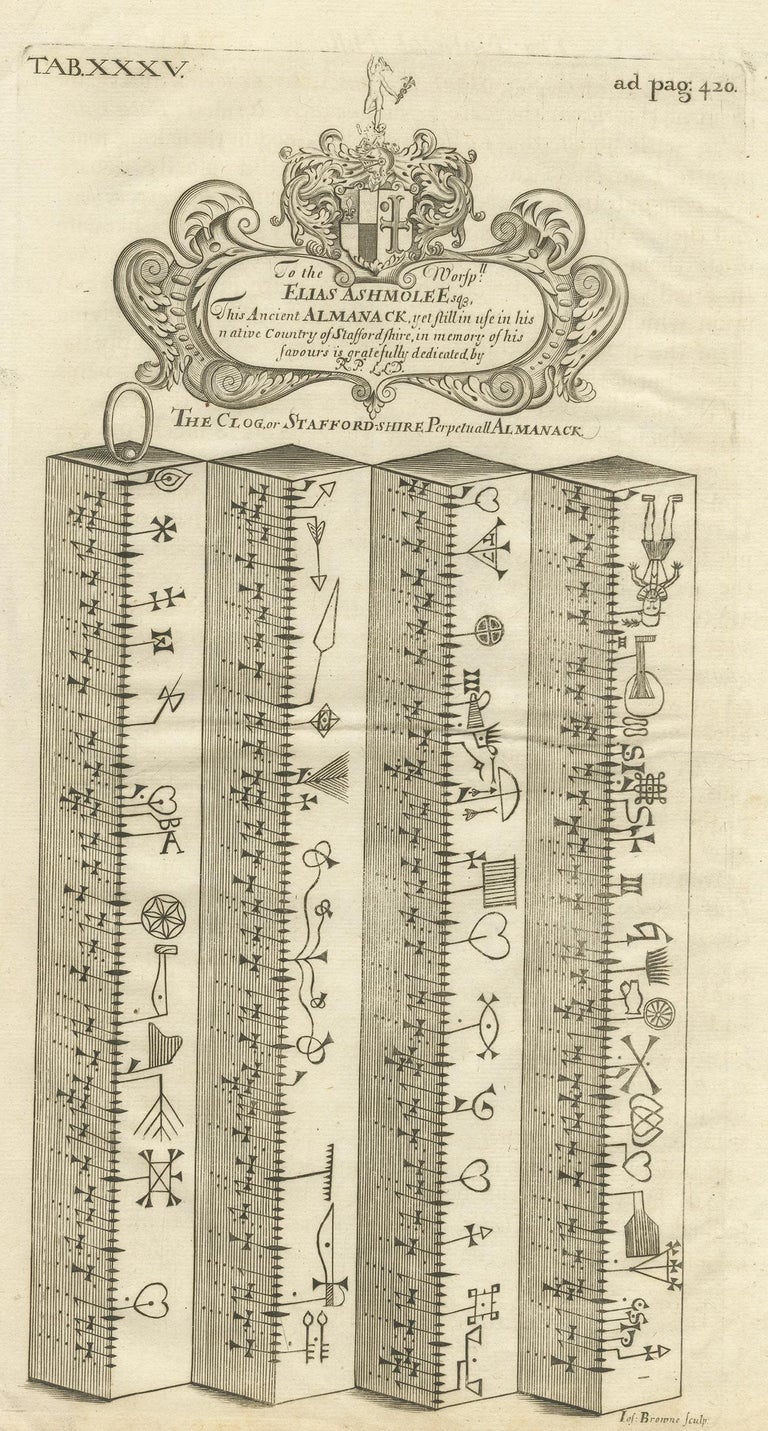 TAB.XXXV.
ad pag: 420.
To the Worsp.ll
ELIAS ASHMOLE Esq3,
This Ancient ALMANACK, yet still in use in his
native Country of Staffordshire, in memory of his
favours is gratefully dedicated, by
R.P. LLD.
THE CLOG, or STAFFORD-SHIRE Perpetuall ALMANACK.
B
A
G
Ios: Browne sculp: